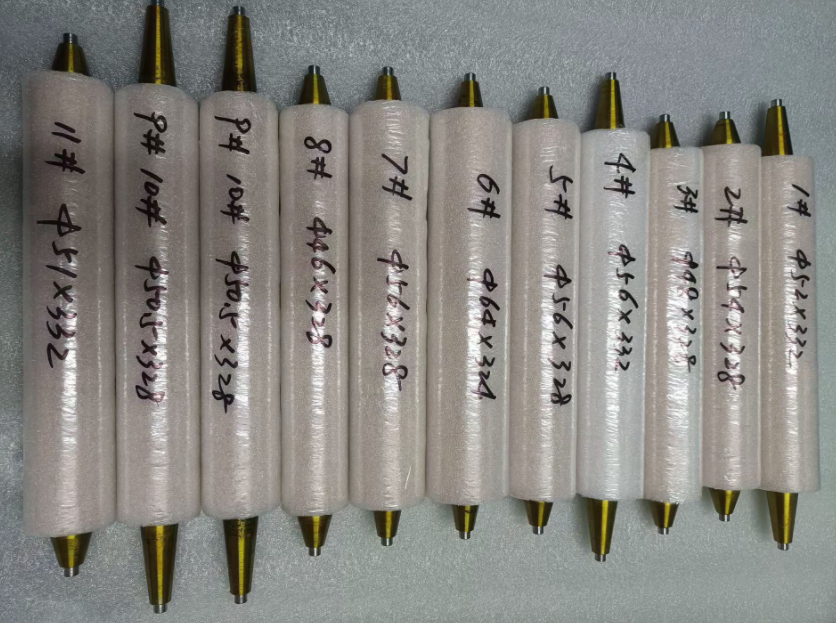 11# Φ51×332
9# 10# Φ50.5×328
9# 10# Φ50.5×328
8# Φ46×328
7# Φ56×328
6#
5# Φ56×328
4# Φ56×332
3#
2# Φ54×328
1# Φ52×332